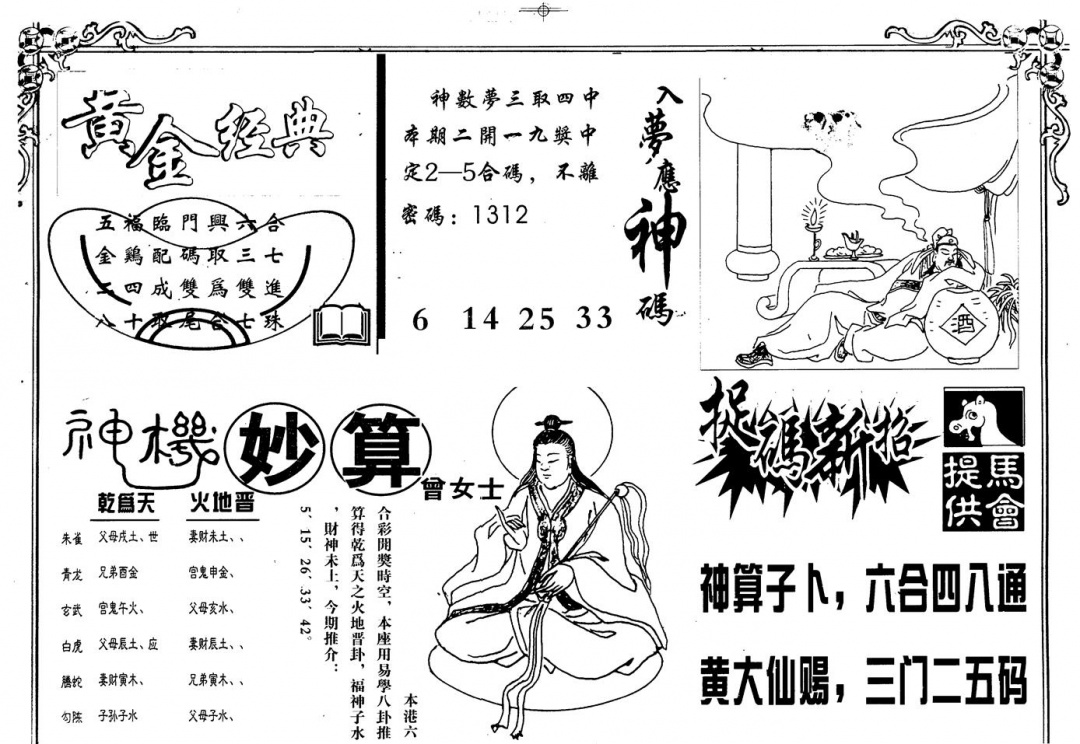 黃金經典
五福臨門興六合
金鷄配碼取三七
二四成雙爲雙進
八十取尾合七珠
神數夢三取四中
本期二開一九獎中
定2—5合碼，不離
密碼：1312
6 14 25 33
入夢應神碼
酒
神機妙算
曾女士
乾爲天 火地晋
朱雀 父母戌土、世 妻财未土、、
青龙 兄弟酉金 官鬼申金、
玄武 官鬼午火、 父母亥水、
白虎 父母辰土、应 妻财辰土、、
腾蛇 妻财寅木、 兄弟寅木、、
勾陈 子孙子水 父母子水、
本港六
合彩開獎時空，本座用易學八卦推
算得乾爲天之火地晋卦，福神子水
，財神未土，今期推介：
5、15、26、33、42。
捉碼新招
馬會提供
神算子卜，六合四入通
黄大仙赐，三门二五码